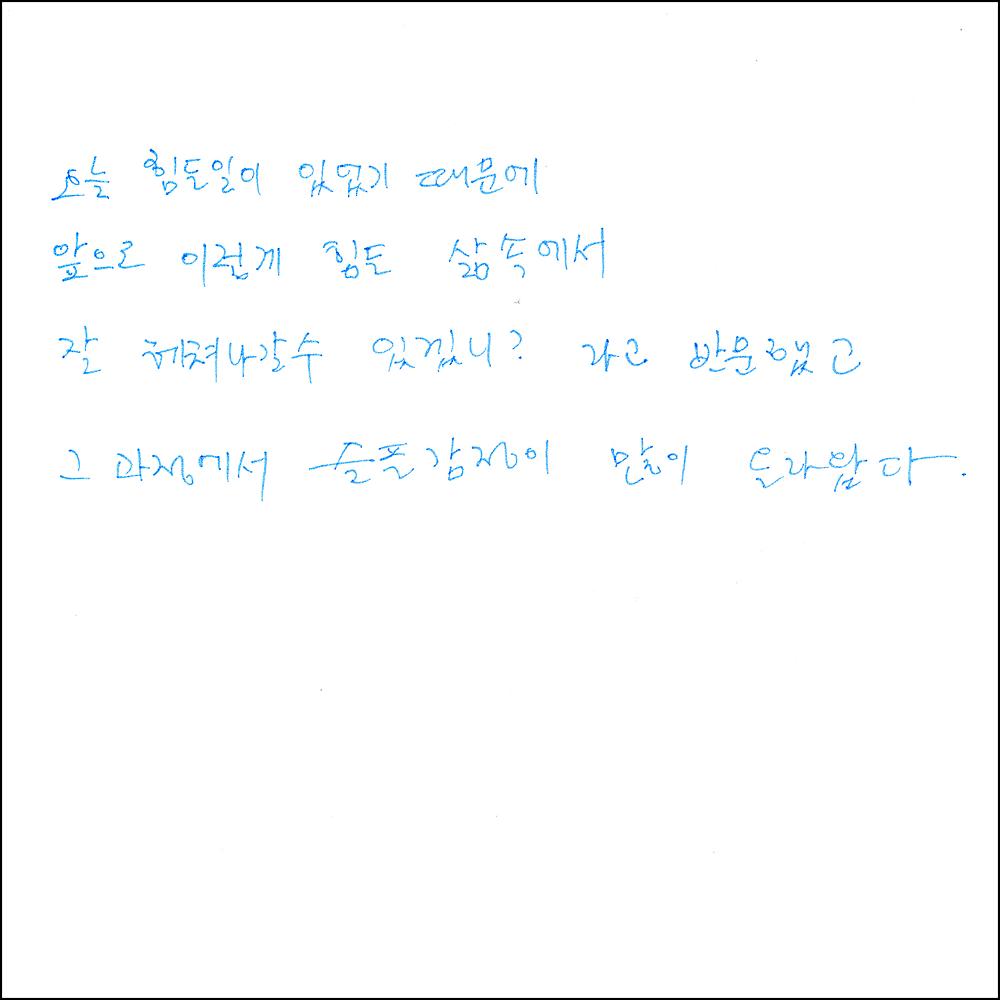 오늘 힘든일이 있었기 때문에
앞으로 이렇게 힘든 삶속에서
잘 헤쳐나갈수 있겠니? 라고 반문했고
그 과정에서 슬픈감정이 많이 몰라왔다.